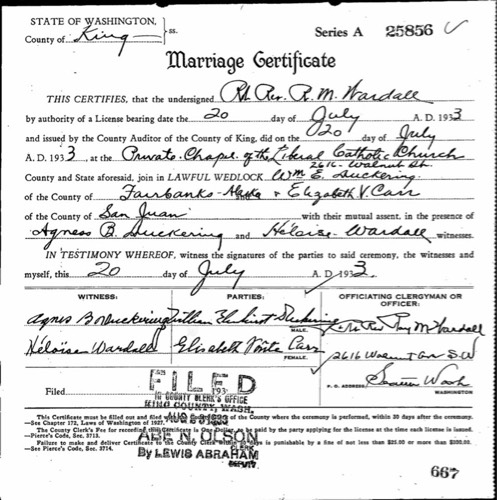 STATE OF WASHINGTON,
County of King ss.
Series A 25856
Marriage Certificate
THIS CERTIFIES, that the undersigned Rt. Rev. R. M. Wardall
by authority of a License bearing date the 20 day of July A. D. 1933
and issued by the County Auditor of the County of King, did on the 20 day of July
A. D. 1933, at the Private Chapel of the Liberal Catholic Church
2616 - Walnut St.
County and State aforesaid, join in LAWFUL WEDLOCK Wm E. Duckering
of the County of Fairbanks - Alaska & Elizabeth V. Carr
of the County of San Juan with their mutual assent, in the presence of
Agness B. Duckering and Heloise Wardall witnesses.
IN TESTIMONY WHEREOF, witness the signatures of the parties to said ceremony, the witnesses and
myself, this 20 day of July A. D. 1933.
WITNESS: PARTIES: OFFICIATING CLERGYMAN OR OFFICER:
Agnes B Duckering William Elmhirst Duckering
MALE. Rt. Rev. Ray M Wardall
Héloise Wardall Elisabeth Carr
FEMALE. 2616 Walnut Ave S.W.
P. O. ADDRESS Seattle Wash
WASHINGTON
FILED
Filed 193
IN COUNTY CLERK'S OFFICE
KING COUNTY, WASH.
This Certificate must be filled out and filed of the County where the ceremony is performed, within 30 days after the ceremony.
AUG 1933
—See Chapter 172, Laws of Washington of 1927.
The County Clerk's Fee for recording this Certificate is One Dollar, to be paid by the party applying for the license at the time each license is issued.
—Pierce's Code, Sec. 3713.
ABE N. OLSON
Failure to make and deliver Certificate to County Clerk within 30 days is punishable by a fine of not less than $25.00 or more than $300.00.
—See Pierce's Code, Sec. 3714.
By LEWIS ABRAHAM
DEPUTY
667